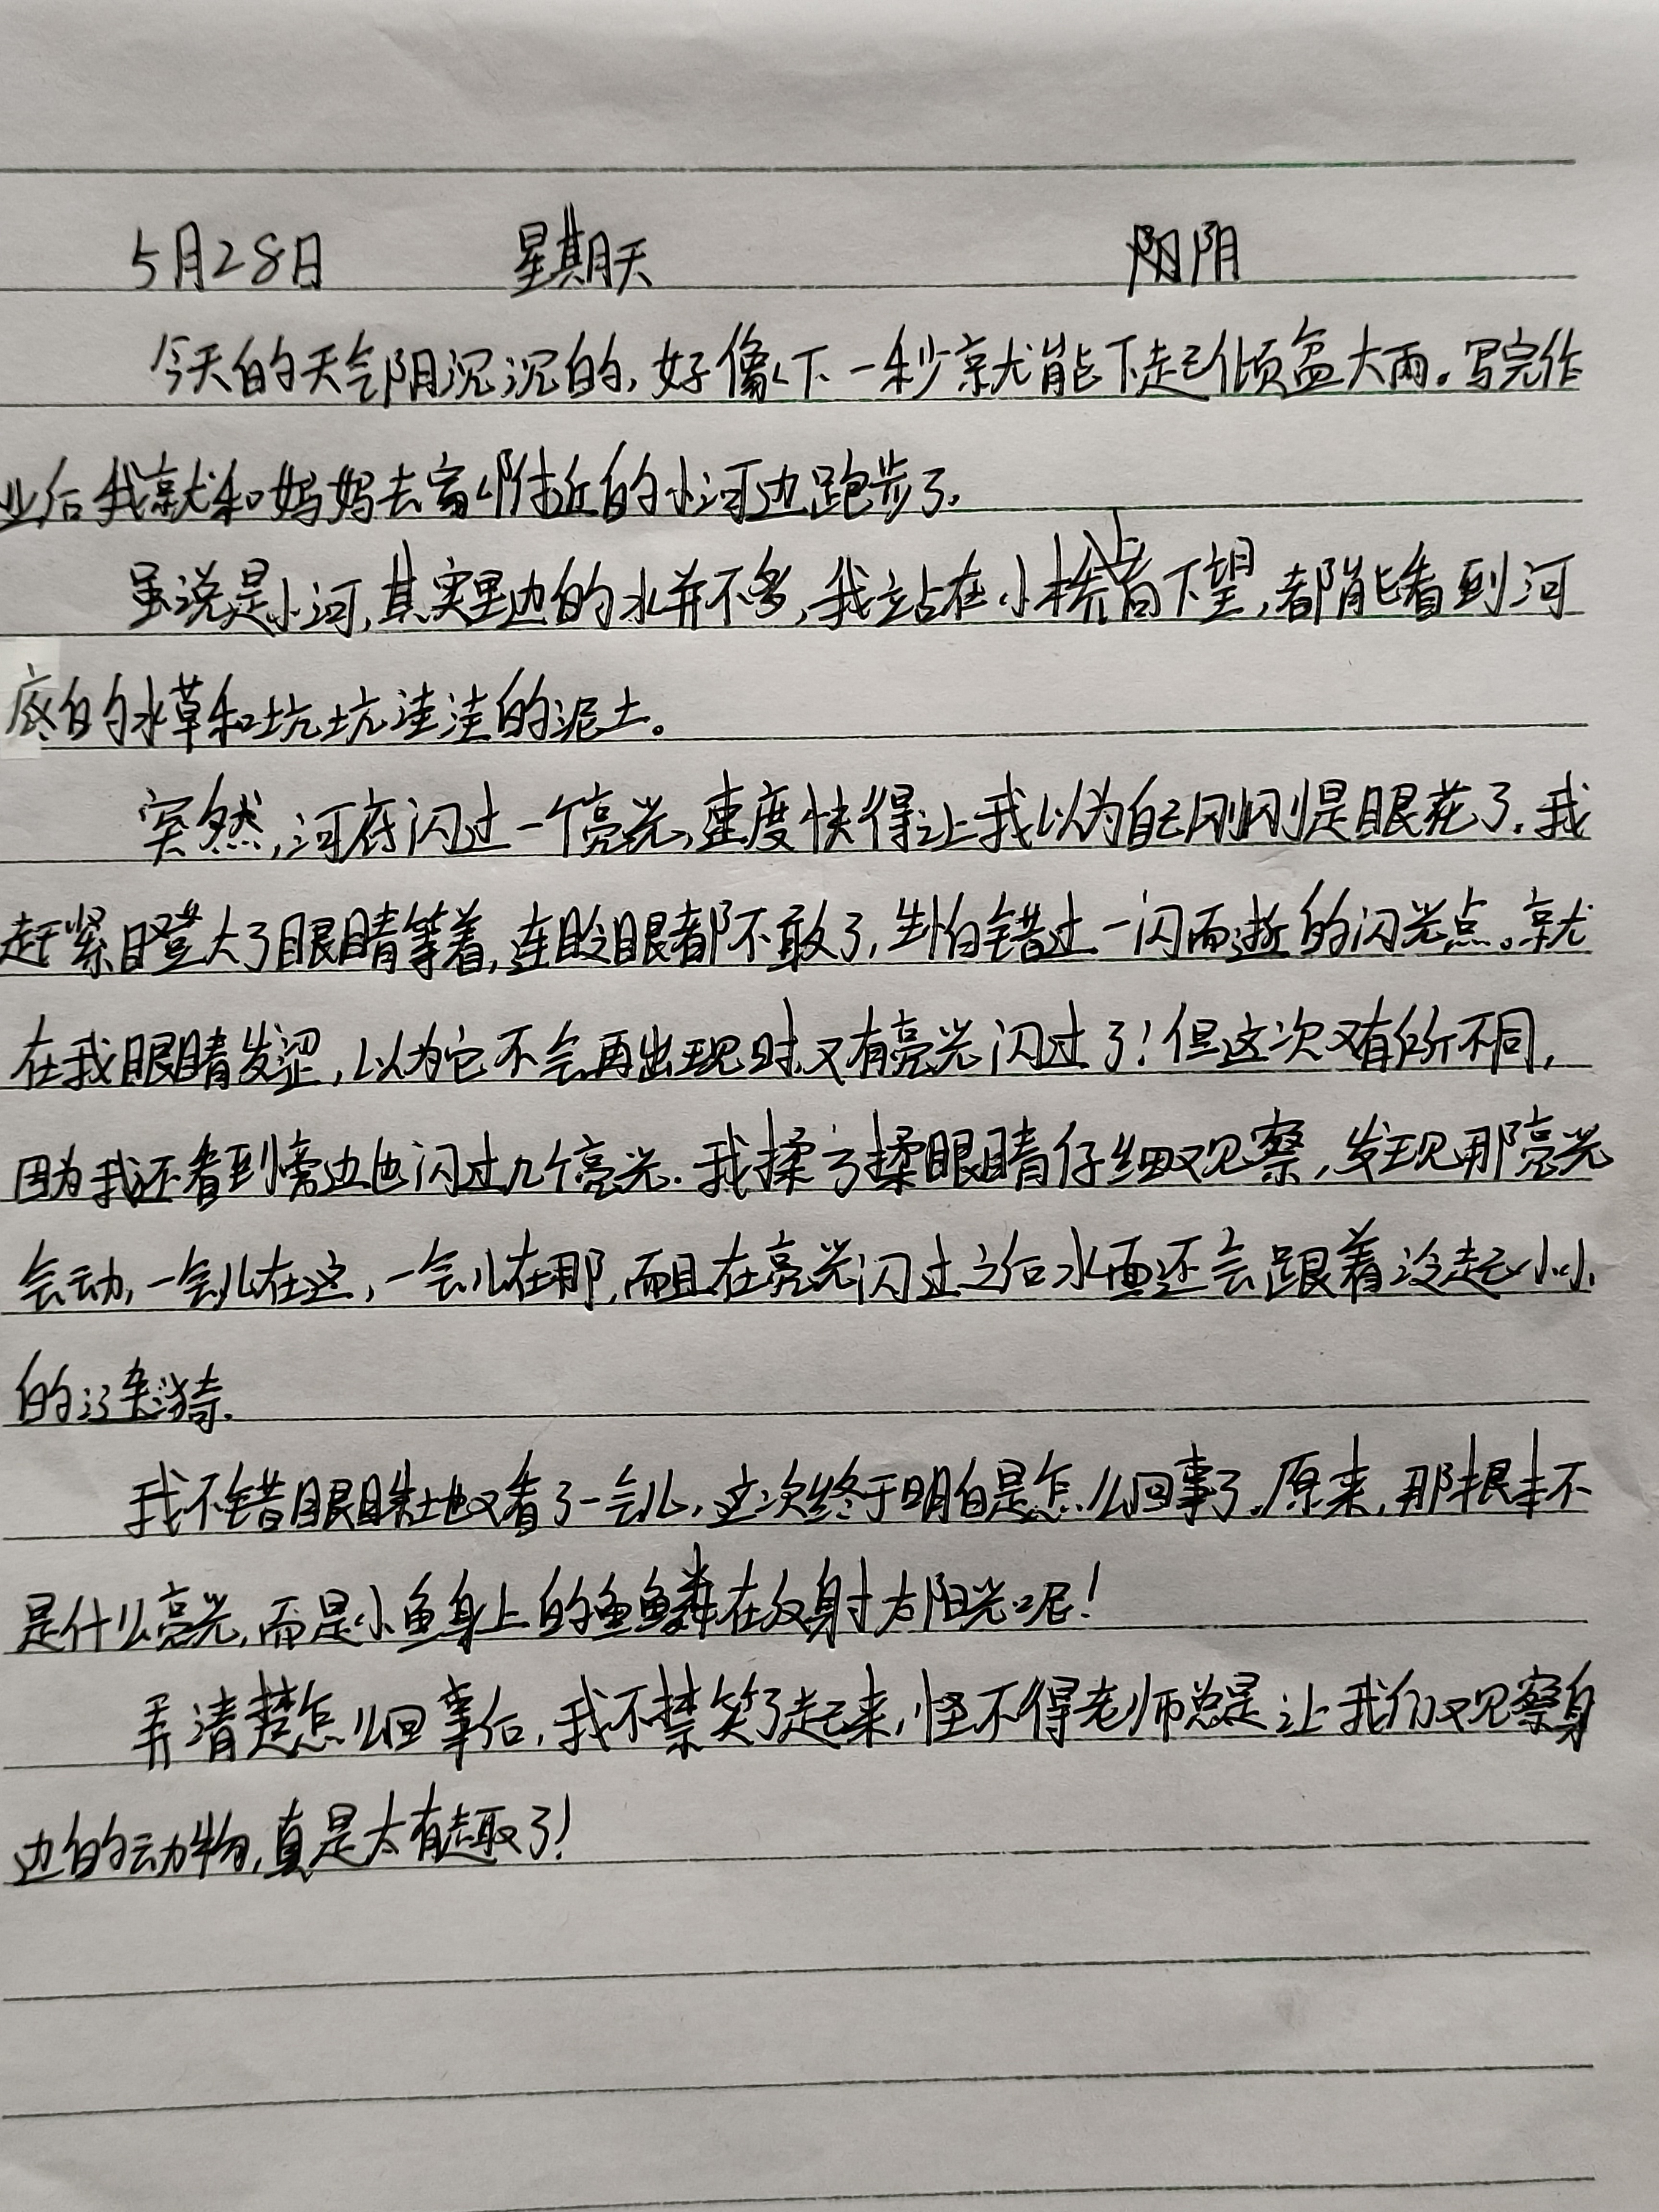 5月28日 星期天 阴
今天的天气阴沉沉的,好像下一秒就能下起倾盆大雨。写完作
业后我就和妈妈去家附近的小河边跑步了.
虽说是小河,其实里边的水并不多,我站在小桥上向下望,都能看到河
底的水草和坑坑洼洼的泥土。
突然,河底闪过一个亮光,速度快得让我以为自己刚刚是眼花了.我
赶紧瞪大了眼睛等着,连眨眼都不敢了,生怕错过一闪而逝的闪光点。就
在我眼睛发涩,以为它不会再出现时,又有亮光闪过了!但这次又有所不同,
因为我还看到旁边也闪过几个亮光.我揉了揉眼睛仔细观察,发现那亮光
会动,一会儿在这,一会儿在那,而且在亮光闪过之后水面还会跟着泛起小小
的涟漪.
我不错眼珠地又看了一会儿,这次终于明白是怎么回事了.原来,那根本不
是什么亮光,而是小鱼身上的鱼鳞在反射太阳光呢!
弄清楚怎么回事后,我不禁笑了起来,怪不得老师总是让我们观察身
边的动物,真是太有趣了!